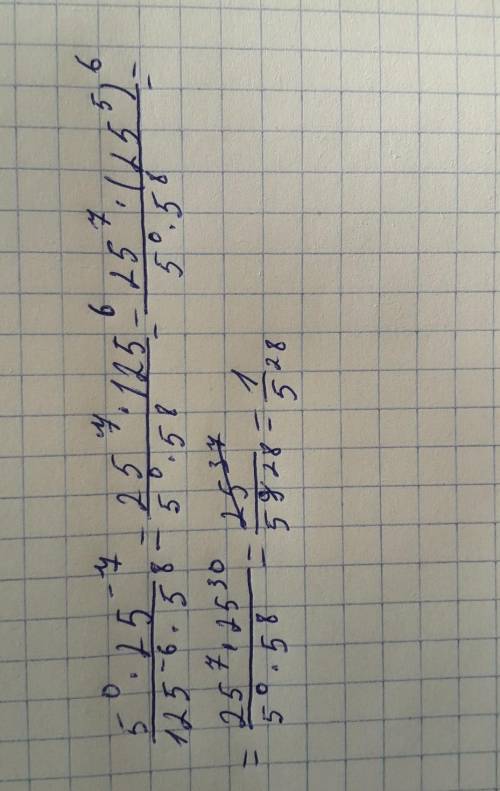 5⁰·25⁻⁷/125⁻⁶·5⁸ = 25⁷·125⁶/5⁰·5⁸ = 25⁷·(25⁵)⁶/5⁰·5⁸ =
= 25⁷·25³⁰/5⁰·5⁸ = /5²⁸ = 1/5²⁸